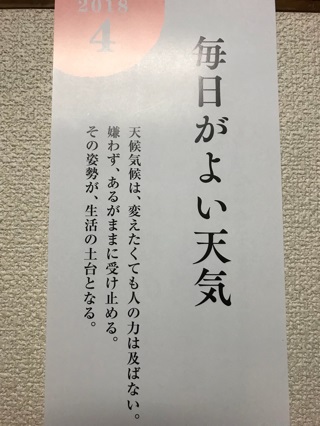 2018
4
毎日がよい天気
天候気候は、変えたくても人の力は及ばない。
嫌わず、あるがままに受け止める。
その姿勢が、生活の土台となる。